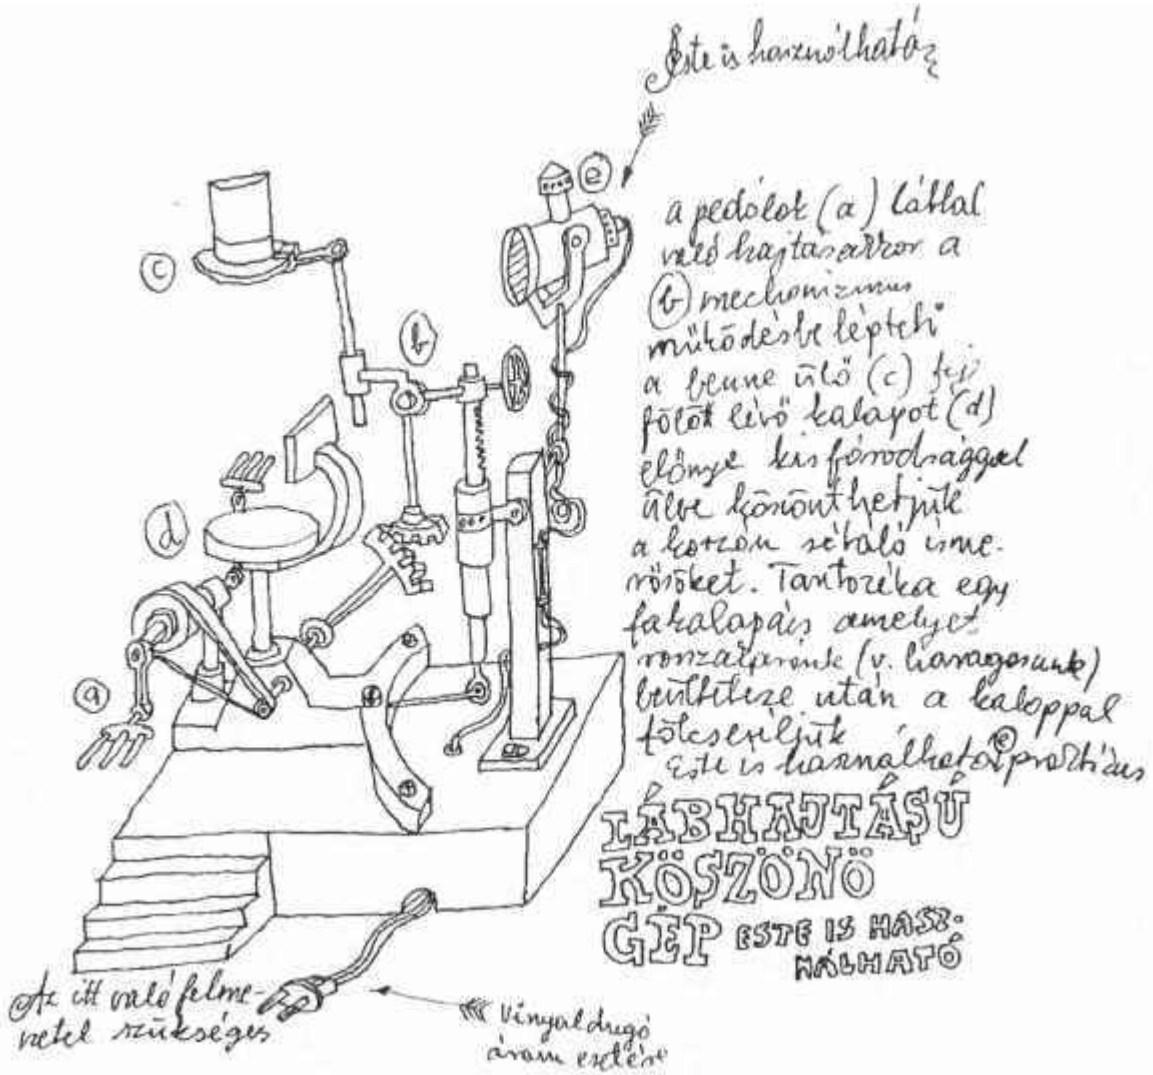 Este is használható
e
c
b
d
a
a pedálok (a) lábbal
való hajtásakkor a
b mechanizmus
működésbe lépteti
a benne ülő (c) fej
fölött lévő kalapot (d)
előnye kis fáradsággal
ülve köszönthetjük
a korzón sétáló isme-
rősöket. Tartozéka egy
fakalapács amelyet
rosszakarónk (v. haragosunk)
után a kalappal
fölcseréljük
Este is használható e praktikus
LÁBHAJTÁSÚ
KÖSZÖNŐ
GÉP ESTE IS HASZ-
NÁLHATÓ
Az itt való felme-
netel szükséges
Vinyaldugó
áram esetére